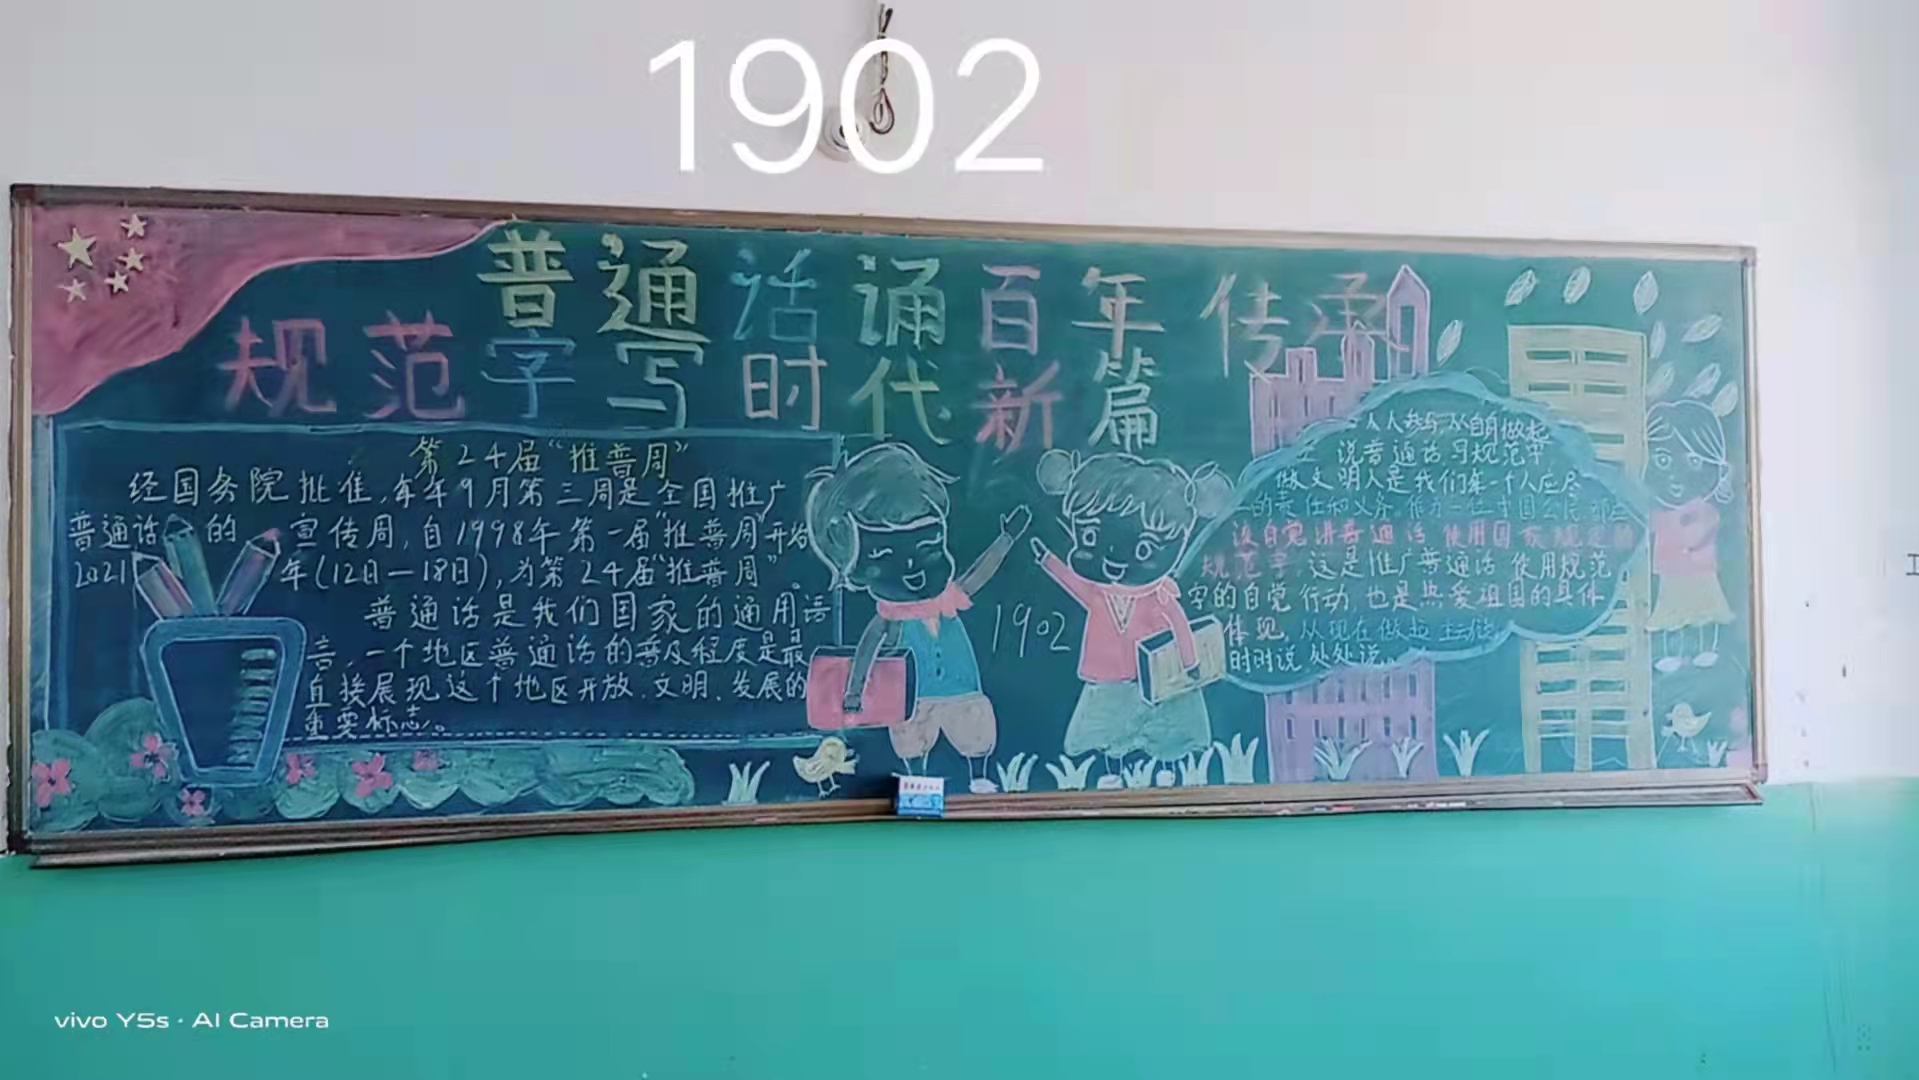 1902
普通话诵百年传承
规范字写时代新篇
第24届“推普周”
经国务院批准,年年9月第三周是全国推广
普通话的宣传周,自1998年第一届“推普周”开始
2021年(12日—18日),为第24届“推普周”。
普通话是我们国家的通用语
言,一个地区普通话的普及程度是最
直接展现这个地区开放、文明、发展的
重要标志。
1902
说普通话写规范字
做文明人是我们每一个人应尽
的责任和义务
该自觉讲普通话使用国家规定的
规范字,这是推广普通话使用规范
字的自觉行动,也是热爱祖国的具体
体现,从现在做起
时时说处处说。
vivo Y5s · AI Camera